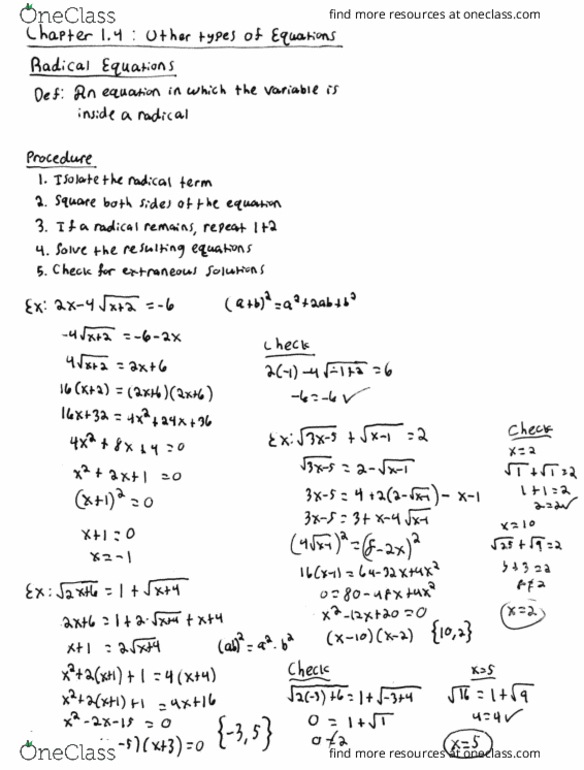 OneClass
find more resources at oneclass.com
Chapter 1.4 : Other types of Equations
Radical Equations
Def: An equation in which the variable is
inside a radical
Procedure
1. Isolate the radical term
2. Square both sides of the equation
3. If a radical remains, repeat 1+2
4. Solve the resulting equations
5. Check for extraneous solutions
Ex: 2x-4√(x+2) = -6
(a+b)² = a²+2ab+b²
-4√(x+2) = -6-2x
4√(x+2) = 2x+6
16(x+2) = (2x+6)(2x+6)
16x+32 = 4x²+24x+36
4x²+8x+4=0
x²+2x+1=0
(x+1)²=0
x+1=0
x=-1
Check
2(-1)-4√(-1+2) = 6
-6=-6✓
Ex: √(3x-5) + √(x-1) = 2
√(3x-5) = 2-√(x-1)
3x-5 = 4+2(2-√(x-1)) - x-1
3x-5 = 3+x-4√(x-1)
(4√(x-1))² = (8-2x)²
16(x-1) = 64-32x+4x²
0=80-48x+4x²
x²-12x+20=0
(x-10)(x-2) {10,2}
Check
x=2
√1+√1=2
1+1=2
2=2✓
x=10
√25+√9=2
5+3=2
8≠2
x=2
Ex: √(2x+6) = 1+√(x+4)
2x+6 = 1+2·√(x+4)+x+4
x+1 = 2√(x+4)
(ab)² = a²·b²
x²+2(x+1)+1=4(x+4)
x²+2(x+1)+1=4x+16
x²-2x-15=0
-5)(x+3)=0 {-3,5}
Check
√(2(-3)+6) = 1+√(-3+4)
0=1+√1
0≠2
x=5
√16=1+√9
4=4✓
x=5
OneClass
find more resources at oneclass.com